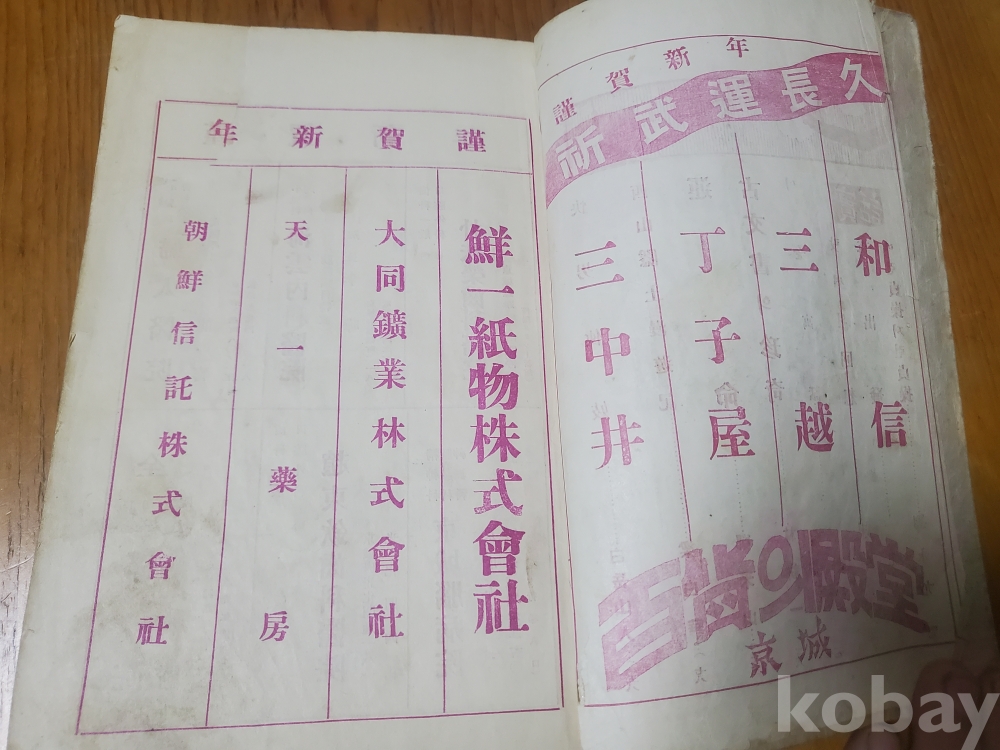 謹賀新年
祈武運長久
和信
三越
丁子屋
三中井
百貨의殿堂
京城
謹賀新年
鮮一紙物株式會社
大同鑛業林式會社
天一藥房
朝鮮信託株式會社
kobay